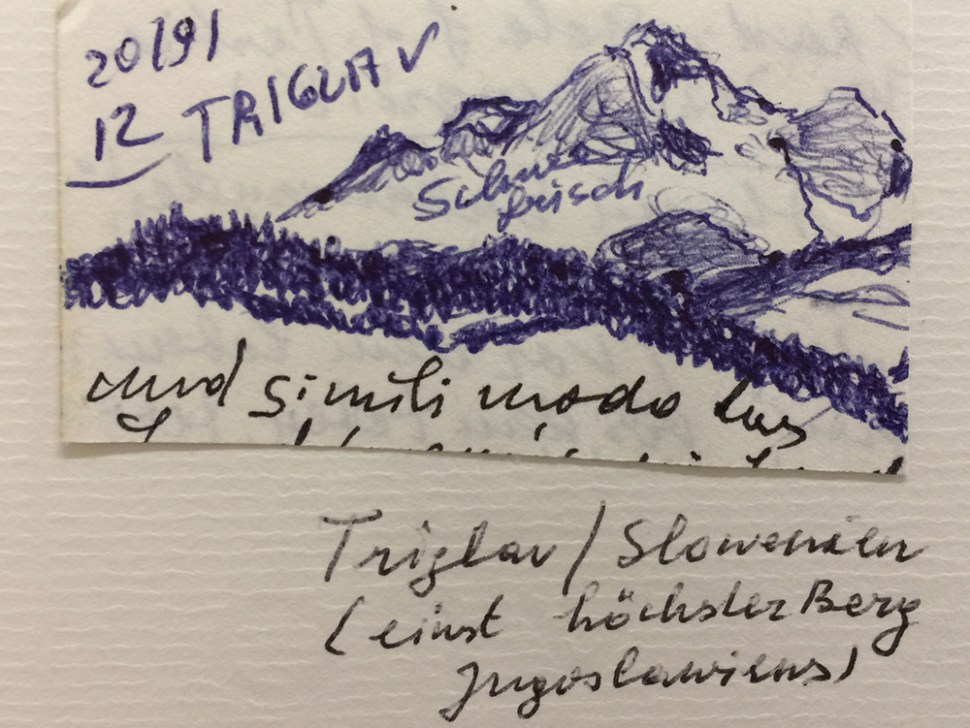 20191
12 TRIGLAV
Schnee
frisch
und simili modo das
Triglav / Slowenien
(einst höchster Berg
Jugoslawiens)